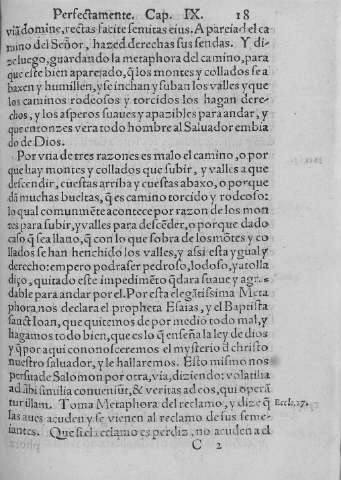 Perfectamente. Cap. IX. 18
viã domine, rectas facite semitas eius. Aparejad el ca
mino del Señor, hazed derechas sus sendas. Y di-
ze luego, guardando la metaphora del camino, para
que este bien aparejado, q̃ los montes y collados se a
baxen y humillen, y se inchan y suban los valles y que
los caminos rodeosos y torcidos los hagan dere-
chos, y los asperos suaues y apazibles para andar, y
que entonzes vera todo hombre al Saluador embia
do de Dios.
Por vna de tres razones es malo el camino, o por
que hay montes y collados que subir, y valles a que
descendir, cuestas arriba y cuestas abaxo, o porque
dã muchas bueltas, q̃ es camino torcido y rodeoso:
lo qual comunmẽte acontece por razon de los mon
tes para subir, y valles para descẽder, o porque dado
caso q̃ sea llano, q̃ con lo que sobra de los mõtes y co
llados se han henchido los valles, y assi esta ygual y
derecho: empero podra ser pedroso, lodoso, y atolla
diço, quitado este impedimẽto q̃dara suaue y agra-
dable para andar por el. Por esta elegãtissima Meta
phora, nos declara el propheta Esaias, y el Baptista
sanct Ioan, que quitemos de por medio todo mal, y
hagamos todo bien, que es lo q̃ enseña la ley de dios
y q̃ por aqui cononosceremos el mysterio d̃ christo
nuestro saluador, y le hallaremos. Esto mismo nos
persuade Salomon por otra, via, diziendo: volatilia
ad sibi similia conueniũt, & veritas ad eos, qui operã
tur illam. Toma Metaphora del reclamo, y dize q̃
Eccle. 27.
las aues acuden y se vienen al reclamo de sus seme-
jantes. Que si el reclamo es perdiz, no acuden a el
C 2